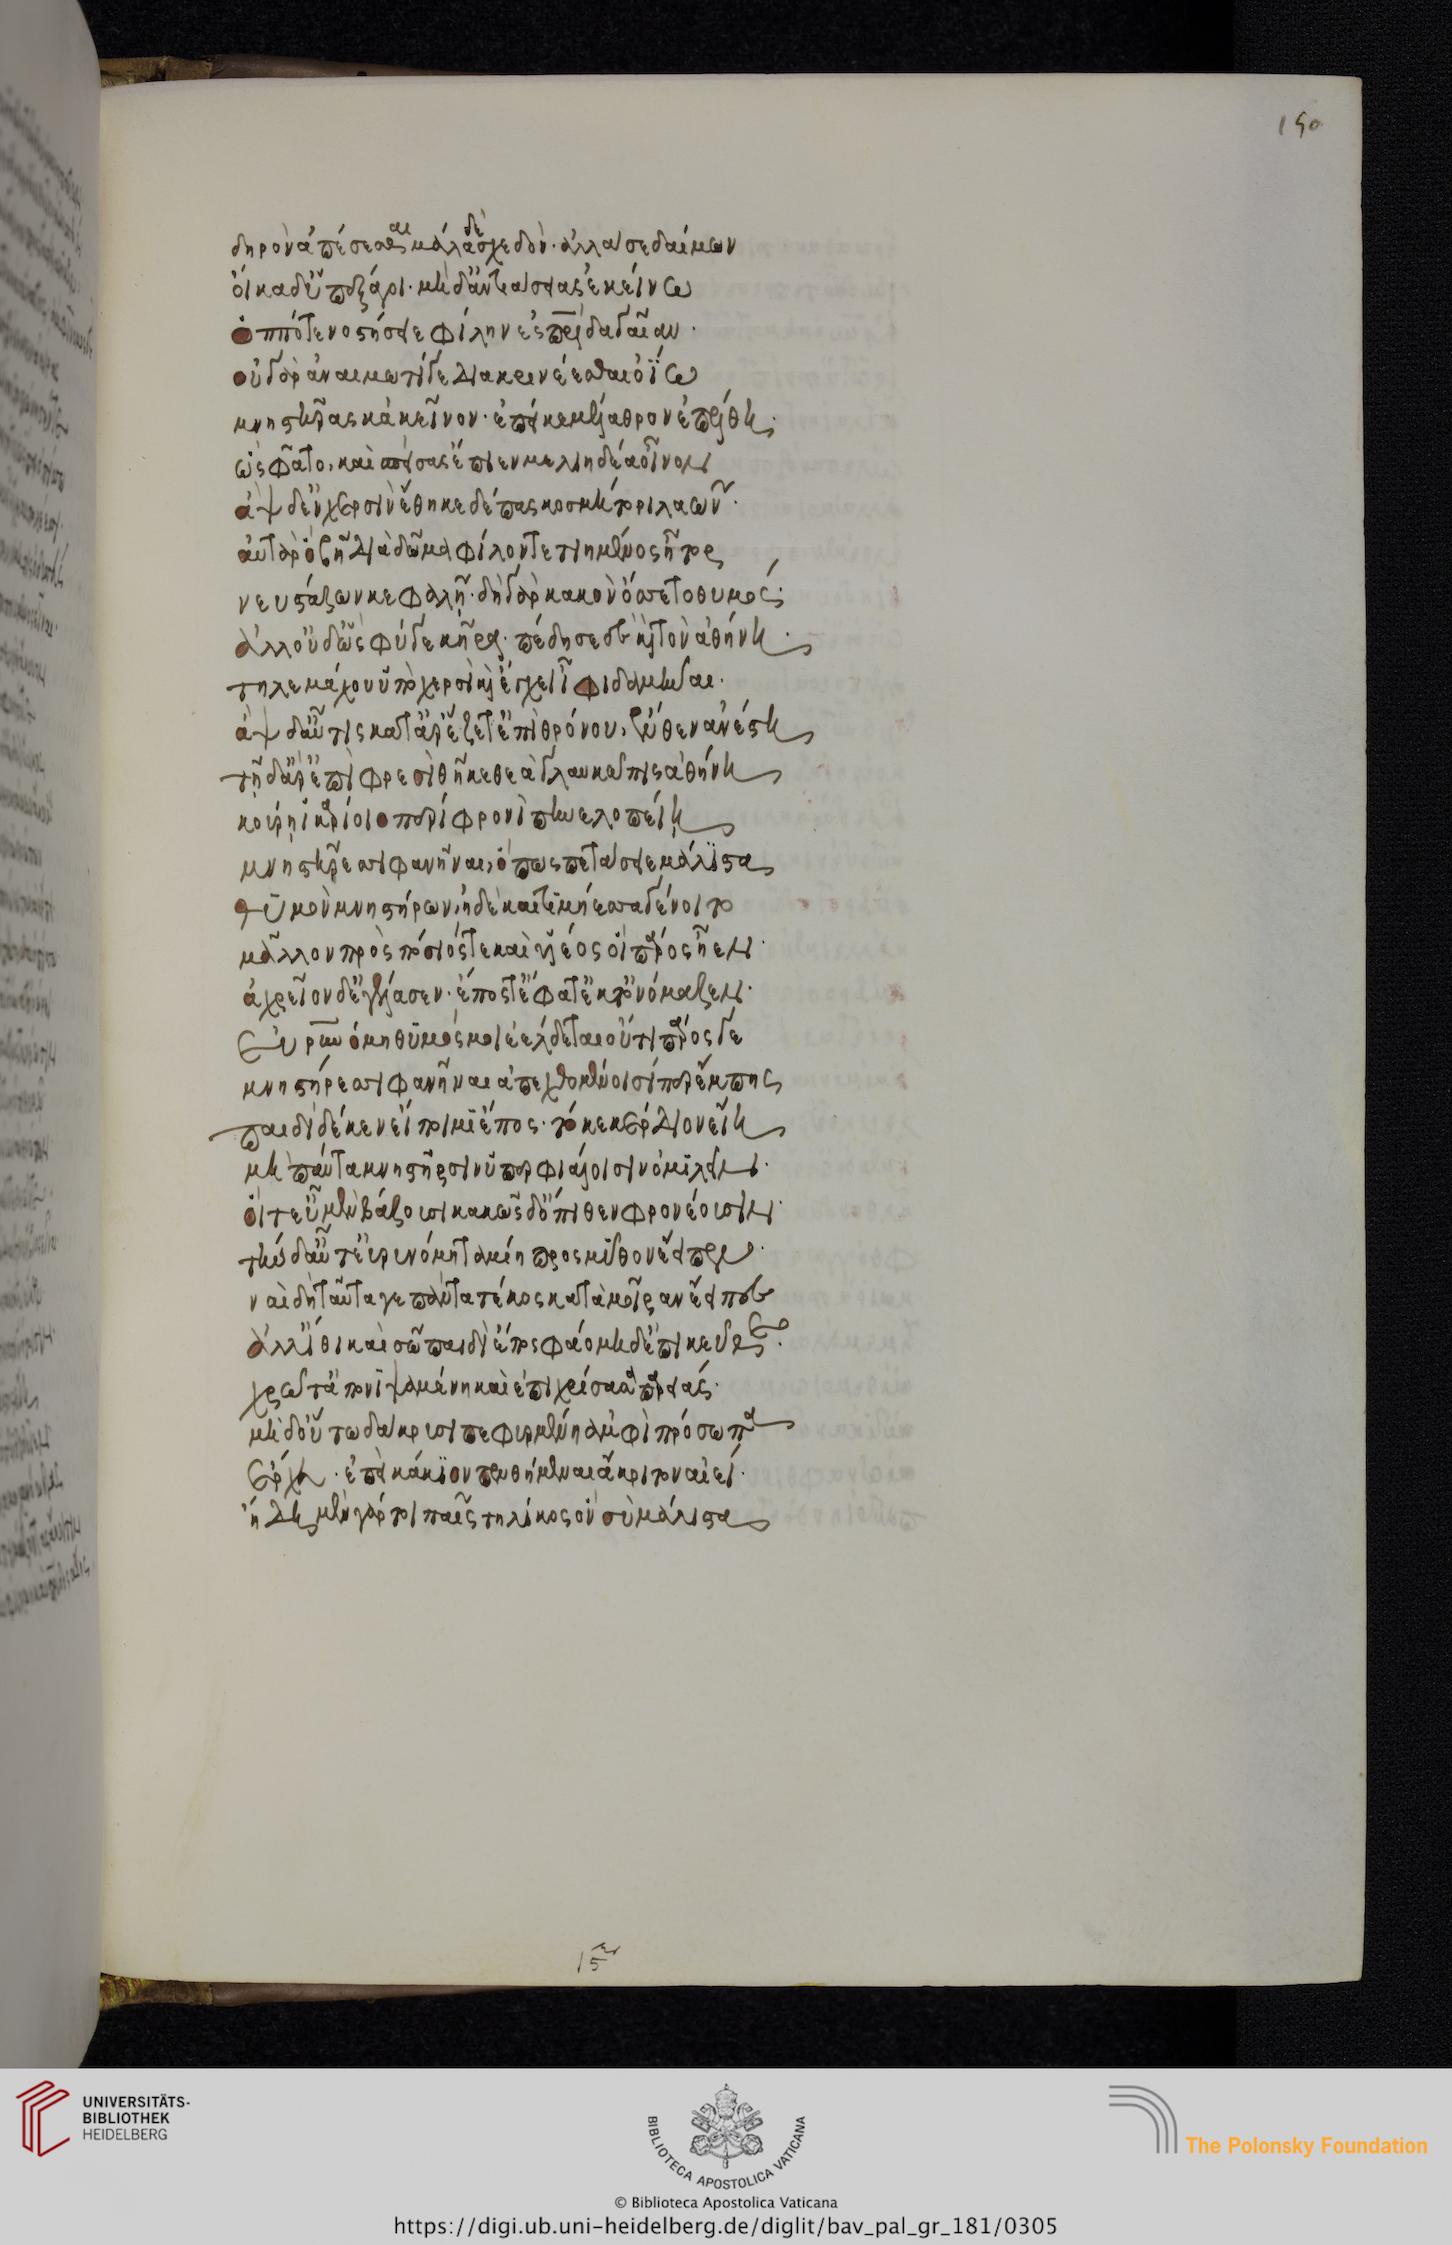 150
δηρὸν ἀπέσεσθαι μάλα δὲ σχεδὸν. ἀλλά σε δαίμων
οἴκαδ' ὑπεξαγάγοι. μὴ δ' ἀντιάσειας ἐκείνω
ὁππότε νοστήσειε φίλην ἐς πατρίδα γαῖαν.
οὐ γὰρ ἀναιμωτί γε διακρινέεσθαι ὀΐω
μνηστῆρας κἀκεῖνον. ἐπεί κε μέλαθρον ἐπέλθη.
ὣς φάτο, καὶ σπείσας ἔπιεν μελιηδέα οἶνον
ἂψ δ' ἐν χερσὶν ἔθηκε δέπας κοσμήτορι λαῶν.
αὐτὰρ ὃ βῆ διὰ δῶμα φίλον τετιημένος ἦτορ
νευστάζων κεφαλῇ. δὴ γὰρ κακὸν ὄσσετο θυμός.
ἀλλ' οὐδ' ὣς φύγε κῆρα. πέδησε δὲ καὶ τὸν ἀθήνη.
τηλεμάχου ὑπὸ χερσὶ καὶ ἔγχεϊ ἶφι δαμῆναι.
ἂψ δ' αὖτις κατ' ἄρ' ἕζετ' ἐπὶ θρόνου, ἔνθεν ἀνέστη
τῇ δ' ἄρ' ἐπὶ φρεσὶ θῆκε θεὰ γλαυκῶπις ἀθήνη
κούρῃ ἰκαρίοιο περίφρονι πηνελοπείῃ
μνηστήρεσσι φανῆναι, ὅπως πετάσειε μάλιστα
θυμὸν μνηστήρων, ἠδὲ καὶ τιμήεσσα γένοιτο
μᾶλλον πρὸς πόσιός τε καὶ υἱέος ἢ πάρος ἦεν.
ἀχρεῖον δ' ἐγέλασεν. ἔπος τ' ἔφατ' ἔκ τ' ὀνόμαζεν.
Εὐρυνόμη θυμός μοι ἐέλδεται οὔτι πάρος γε
μνηστήρεσσι φανῆναι ἀπεχθομένοισί περ ἔμπης
παιδὶ δέ κεν εἴποιμι ἔπος. τό κε κέρδιον εἴη
μὴ πάντα μνηστῆρσιν ὑπερφιάλοισιν ὁμιλεῖν.
οἵ τ' εὖ μὲν βάζουσι κακῶς δ' ὄπιθεν φρονέουσιν.
τὴν δ' αὖτ' εὐρυνόμη ταμίη πρὸς μῦθον ἔειπεν.
ναὶ δὴ ταῦτά γε πάντα τέκος κατὰ μοῖραν ἔειπες
ἀλλ' ἴθι καὶ σῷ παιδὶ ἔπος φάο μηδ' ἐπίκευθε.
χρῶτ' ἀπονιψαμένη καὶ ἐπιχρίσασα παρειάς.
μὴ δ' οὕτω δακρύοισι πεφυρμένη ἀμφὶ πρόσωπα
ἔρχευ. ἐπεὶ κάκιον πενθήμεναι ἄκριτον αἰεί.
ἤδη μὲν γάρ τοι παῖς τηλίκος ὃν σὺ μάλιστα
UNIVERSITÄTS-
BIBLIOTHEK
HEIDELBERG
BIBLIOTECA APOSTOLICA VATICANA
The Polonsky Foundation
© Biblioteca Apostolica Vaticana
https://digi.ub.uni-heidelberg.de/diglit/bav_pal_gr_181/0305